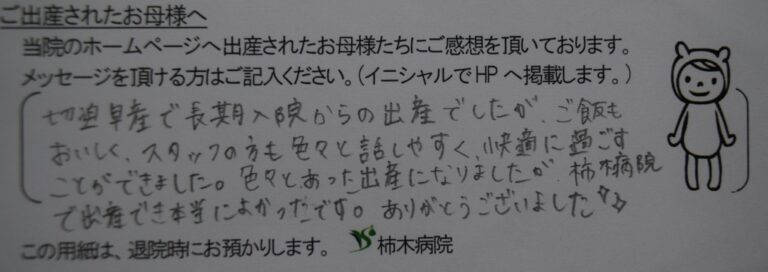 ご出産されたお母様へ
当院のホームページへ出産されたお母様たちにご感想を頂いております。
メッセージを頂ける方はご記入ください。(イニシャルでHPへ掲載します。)
切迫早産で長期入院からの出産でしたが、ご飯も
おいしく、スタッフの方も色々と話しやすく、快適に過ごす
ことができました。色々とあった出産になりましたが、柿木病院
で出産でき本当によかったです。ありがとうございました
この用紙は、退院時にお預かりします。 柿木病院